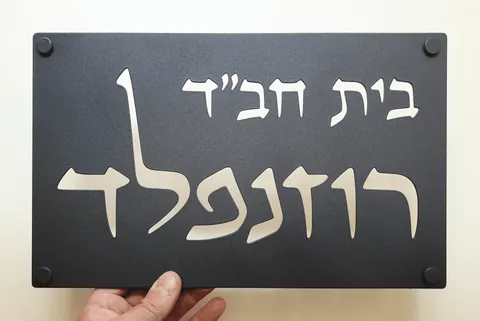 בית חב"ד
רוזנפלד